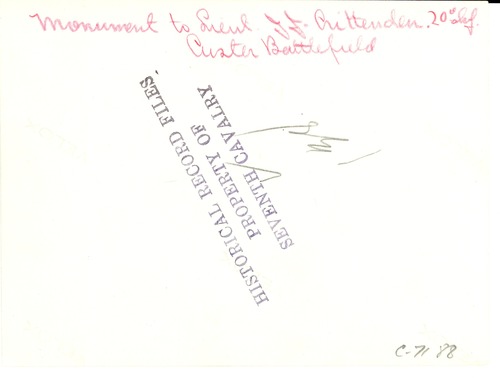 Monument to Lieut. J.J. Crittenden. 20th Inf.
Custer Battlefield
HISTORICAL RECORD FILES.
PROPERTY OF
SEVENTH CAVALRY
C-71 88